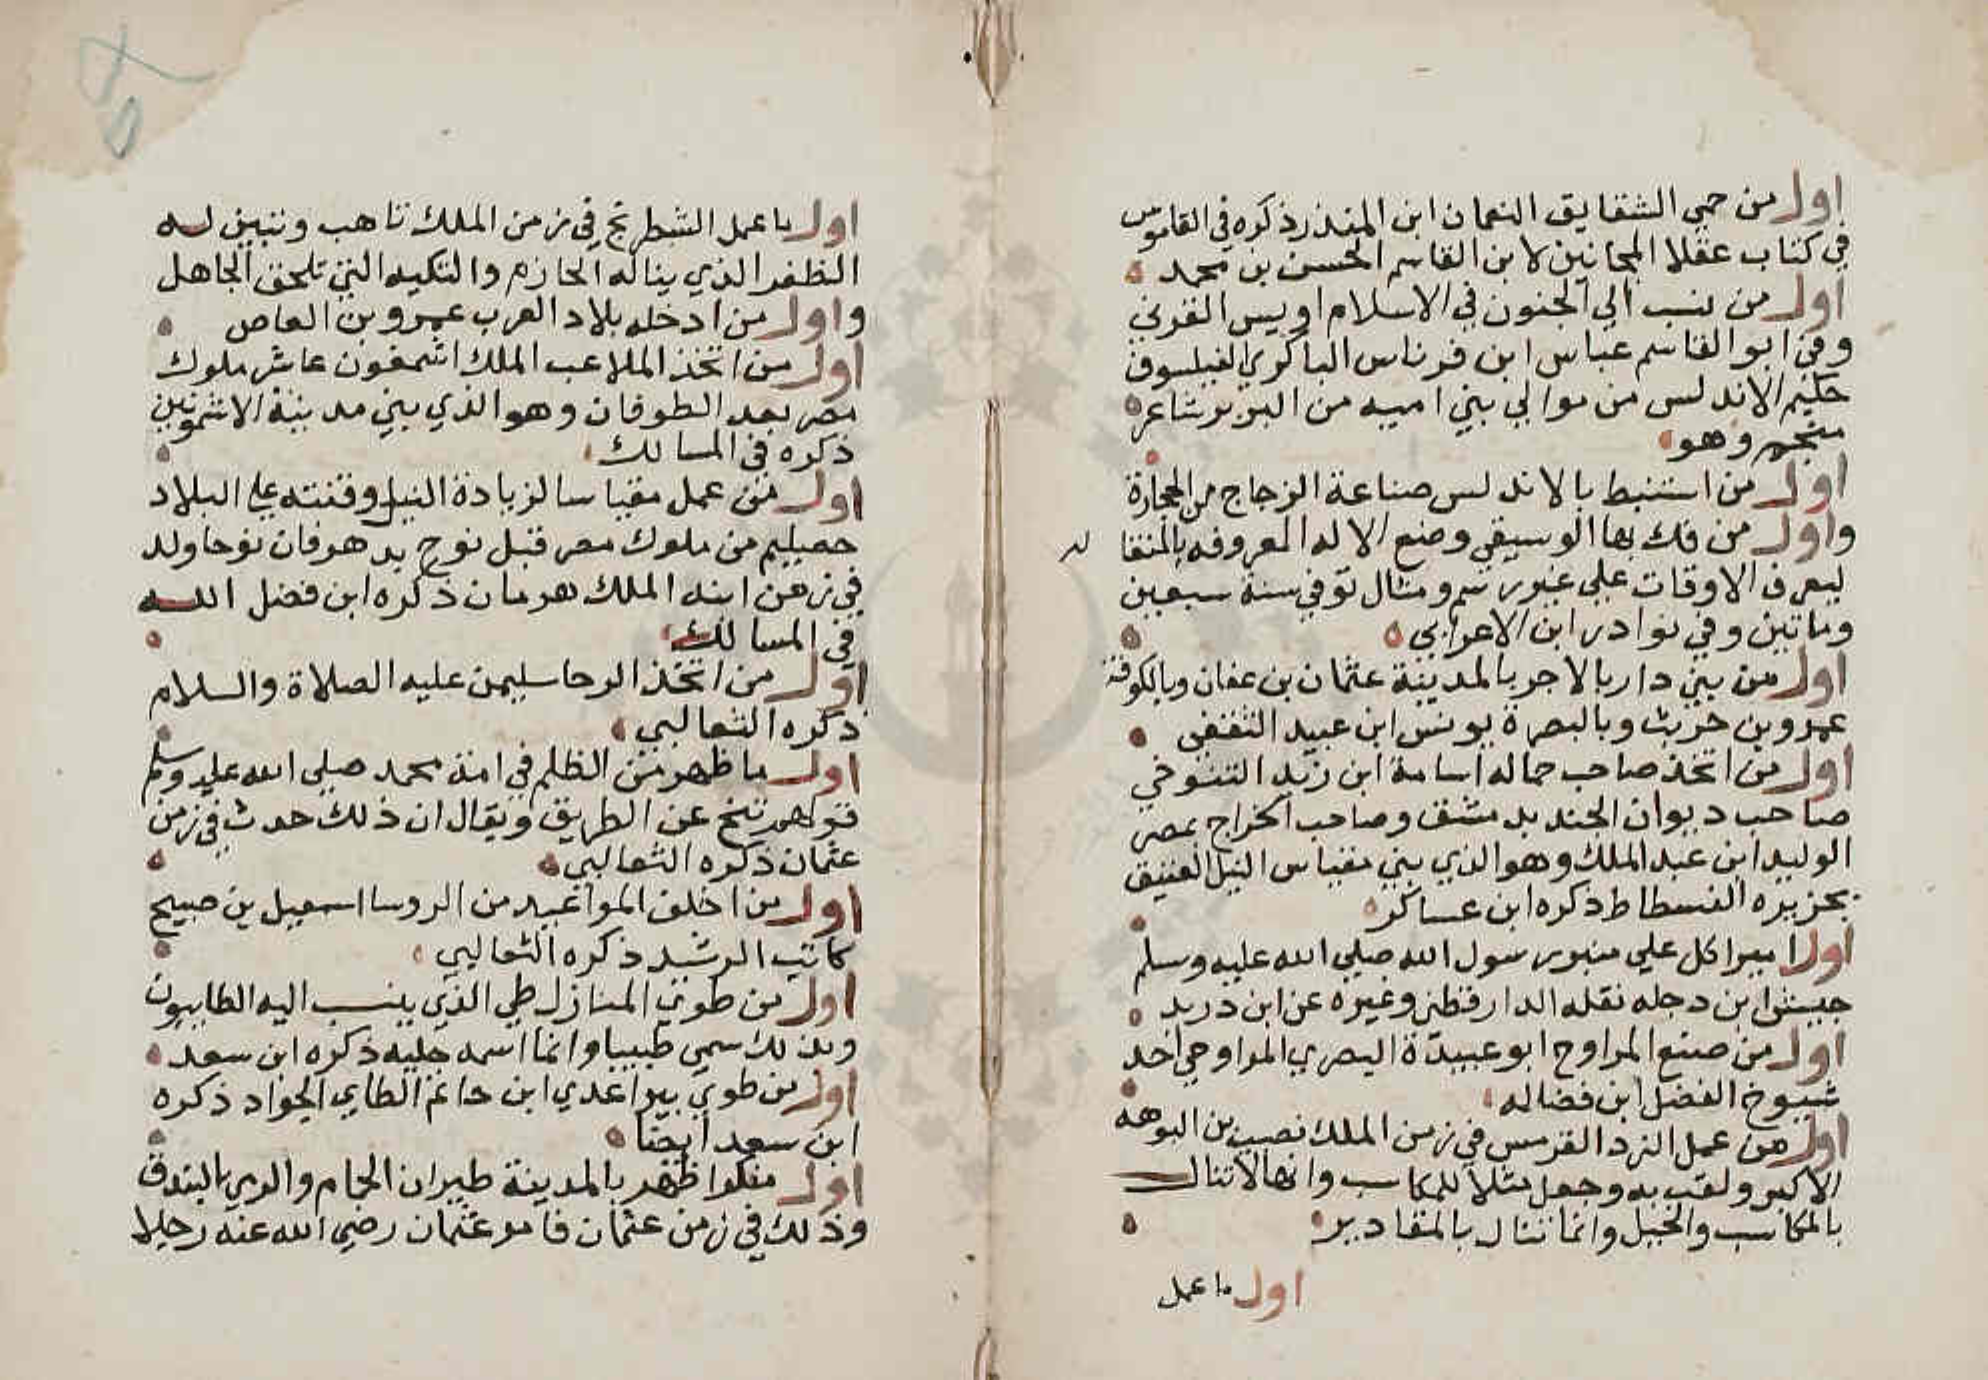 اول من حمي الشقايق النعمان ابن المنذر ذكره في القاموس
في كتاب عقلا المجانين لابن القاسم الحسن بن محمد
اول من نسب الي الجنون في الاسلام اويس القرني
وفي ابو القاسم عباس ابن فرناس الباكوري الفيلسوف
حكيم الاندلس من موالي بني اميه من البربر شاعر
منجم وهو
اول من استنبط بالاندلس صناعة الزجاج من الحجارة
واول من فك بها الوسيقي وصنع الاله المعروفه بالمنقا له
ليعرف الاوقات علي غير رسم ومثال توفي سنة سبعين
وماتين وفي نوادر ابن الاعرابي
اول من بني دار بالاجر بالمدينة عثمان بن عفان وبالكوفة
عمرو بن حريث وبالبصرة يونس ابن عبيد الثقفي
اول من اتخذ صاحب حماله اسامة ابن زيد التنوخي
صاحب ديوان الجند بدمشق وصاحب الخراج بمصر
الوليد ابن عبد الملك وهو الذي بني مقياس النيل العتيق
بجزيره الفسطاط ذكره ابن عساكر
اول امير اكل علي منبر رسول الله صلي الله عليه وسلم
حبيش ابن دجله نقله الدارقطني وغيره عن ابن دريد
اول من صنع المراوح ابو عبيدة البصري المراوحي احد
شيوخ الفضل ابن فضاله
اول من عمل النرد الفرس في زمن الملك نصيب بن البوهه
الاكبر ولقب به وجعل مثلا للمكاسب وانها لا تنال
بالمكاسب والحيل وانما تنال بالمقادير
اول ما عمل
اول ما عمل الشطرنج في زمن الملك تاهب وتبين له
الظفر الذي يناله الحازم والنكيه التي تلحق الجاهل
واول من ادخله بلاد العرب عمرو بن العاص
اول من اتخذ الملاعب الملك اشمفون عاشر ملوك
مصر بعد الطوفان وهو الذي بني مدينة الاشمونين
ذكره في المسالك
اول من عمل مقياسا لزيادة النيل وقنته علي البلاد
حصيليم من ملوك مصر قبل نوح بدهر فان نوحا ولد
في زمن ابنه الملك هرمان ذكره ابن فضل الله
في المسالك
اول من اتخذ الرحا سليمن عليه الصلاة والسلام
ذكره الثعالبي
اول ما ظهر من الظلم في امة محمد صلي الله عليه وسلم
قولهم تنح عن الطريق ويقال ان ذلك حدث في زمن
عثمان ذكره الثعالبي
اول من اخلف المواعيد من الروسا اسمعيل بن صبيح
كاتب الرشيد ذكره الثعالبي
اول من طوي المنازل طي الذي ينسب اليه الطاييون
وبذلك سمي طييا وانما اسمه جليه ذكره ابن سعد
اول من طوي بيرا عدي ابن حاتم الطاي الجواد ذكره
ابن سعد ايضا
اول منكرا ظهر بالمدينة طيران الحمام والرمي بالبندق
وذلك في زمن عثمان فامر عثمان رضي الله عنه رجلا